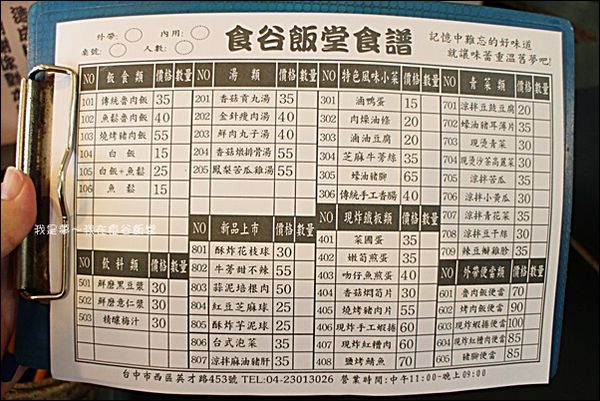 外帶: 內用:
桌號: 人數:
食谷飯堂食譜
記憶中難忘的好味道
就讓味蕾重溫舊夢吧!
NO 飯食類 價格 數量
101 傳統魯肉飯 35
102 魚鬆魯肉飯 40
103 燒烤豬肉飯 55
104 白飯 15
105 白飯+魚鬆 25
106 魚鬆 15
NO 飲料類 價格 數量
501 鮮磨黑豆漿 30
502 鮮磨薏仁漿 30
503 精釀梅汁 30
NO 湯類 價格 數量
201 香菇貢丸湯 35
202 金針瘦肉湯 40
203 鮮肉丸子湯 40
204 香菇燉排骨湯 55
205 鳳梨苦瓜雞湯 55
NO 新品上市 價格 數量
801 酥炸花枝球 30
802 牛蒡甜不辣 55
803 蒜泥培根肉 50
804 紅豆芝麻球 25
805 酥炸芋泥球 25
806 台式泡菜 35
807 涼拌麻油豬肝 35
NO 特色風味小菜 價格 數量
301 滷鴨蛋 15
302 肉燥油條 20
303 滷油豆腐 20
304 芝麻牛蒡絲 35
305 蠔油豬腳 65
306 傳統手工香腸 40
NO 現炸鐵板類 價格 數量
401 菜圃蛋 35
402 嫩筍煎蛋 35
403 吻仔魚煎蛋 40
404 香菇燜筍片 30
405 燒烤豬肉片 55
406 現炸手工蝦捲 60
407 現炸紅糟肉 60
408 鹽烤鯖魚 70
NO 青菜類 價格 數量
701 涼拌豆鼓豆腐 20
702 蠔油豬耳薄片 35
703 現燙青菜 30
704 現燙沙茶高麗菜 30
705 涼拌苦瓜 35
706 涼拌小黃瓜 30
707 涼拌青花菜 35
708 涼拌豆干絲 30
709 辣豆瓣雞胗 35
NO 外帶便當類 價格 數量
601 魯肉飯便當 70
602 烤肉飯便當 90
603 現炸蝦捲便當 100
604 現炸紅糟肉便當 85
605 豬腳便當 85
台中市西區英才路453號 TEL:04-23013026 營業時間:中午11:00-晚上09:00